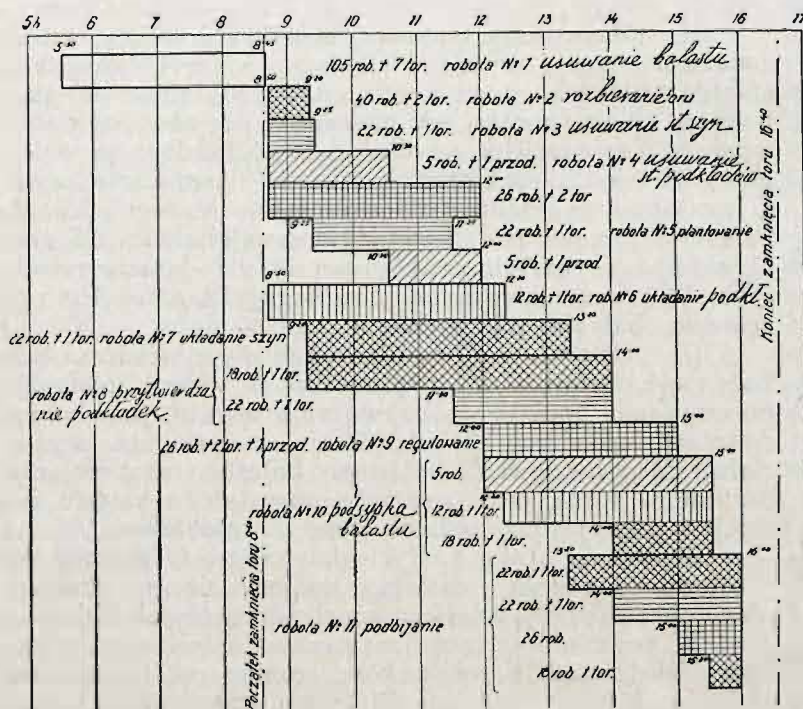 5h 6 7 8 9 10 11 12 13 14 15 16 17
5 30 8 45
105 rob. + 7 tor. robota № 1 usuwanie balastu
8 50 9 20
40 rob + 2 tor. robota № 2 rozbieranie toru
9 25
22 rob. + 1 tor. robota № 3 usuwanie st szyn
10 30
5 rob. + 1 przod. robota № 4 usuwanie
st. podkładów
12 00
26 rob. + 2 tor
9 25 11 30
22 rob. + 1 tor. robota № 5 plantowanie
10 30 12 00
5 rob + 1 przod
8 50 12 20
12 rob. + 1 tor. rob. № 6 układanie podkł.
22 rob. + 1 tor. robota № 7 układanie szyn
9 20 13 20
14 00
robota № 8 przytwierdza
nie podkładek.
18 rob. + 1 tor.
22 rob. + 1 tor.
12 00 15 00
26 rob. + 2 tor. + 1 przod. robota № 9 regulowanie
robota № 10 podsypka
balastu
5 rob.
12 20
12 rob 1 tor
14 00
18 rob. + 1 tor.
13 20 16 00
robota № 11 podbijanie
22 rob. 1 tor.
14 00
22 rob. + 1 tor.
15 00
26 rob.
15 30
18 rob + tor.
Początek zamknięcia toru 8 40
Koniec zamknięcia toru 16 40